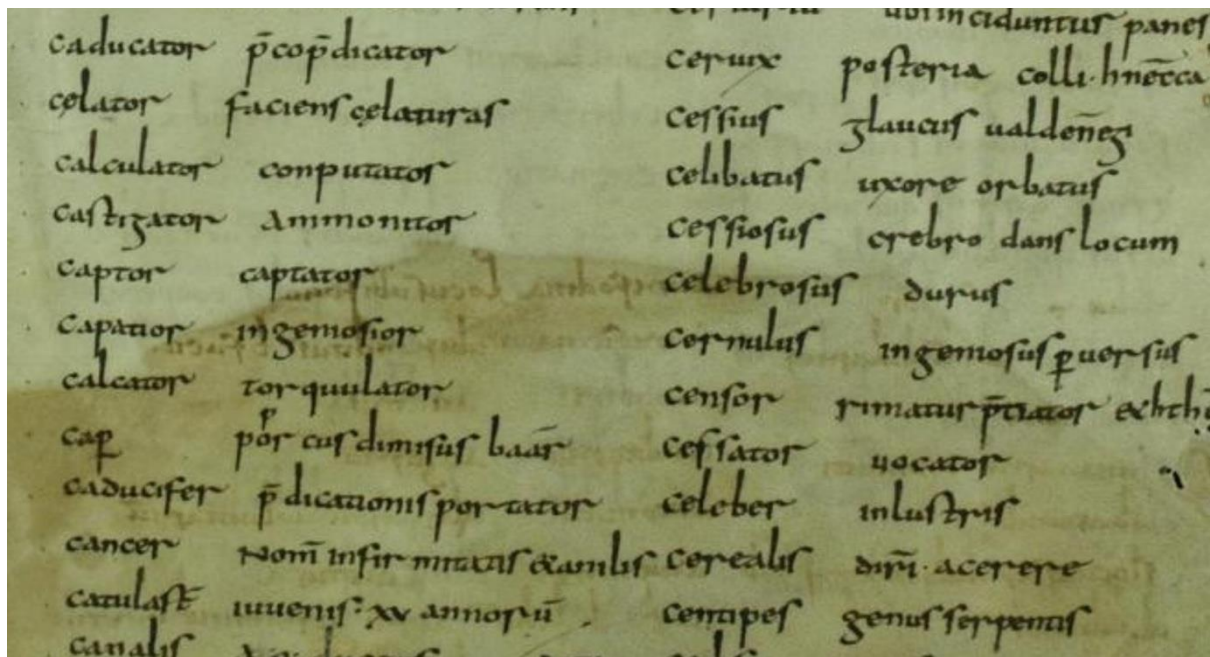 ubi inciduntur panes
caducator p̄cop̄dicator
cęlator faciens cęlaturas
calculator conputator
castigator ammonitor
captor captator
capatior ingeniosior
calcator torquulator
cap̱ porcus dimisus
caducifer p̄dicationis portator
cancer nom̄ infirmitatis &
catulast̄ iuuenis · xv annorū
canalis
ceruix posteria colli · hnecca
cessius glaucus
celibatus uxore orbatus
cessiosus crebro dans locum
celebrosus durus
cernulus ingeniosus ꝑuersus
censor rimatur
cessator uocator
celeber inlustris
cerealis diri · acerere
centipes genus serpentis